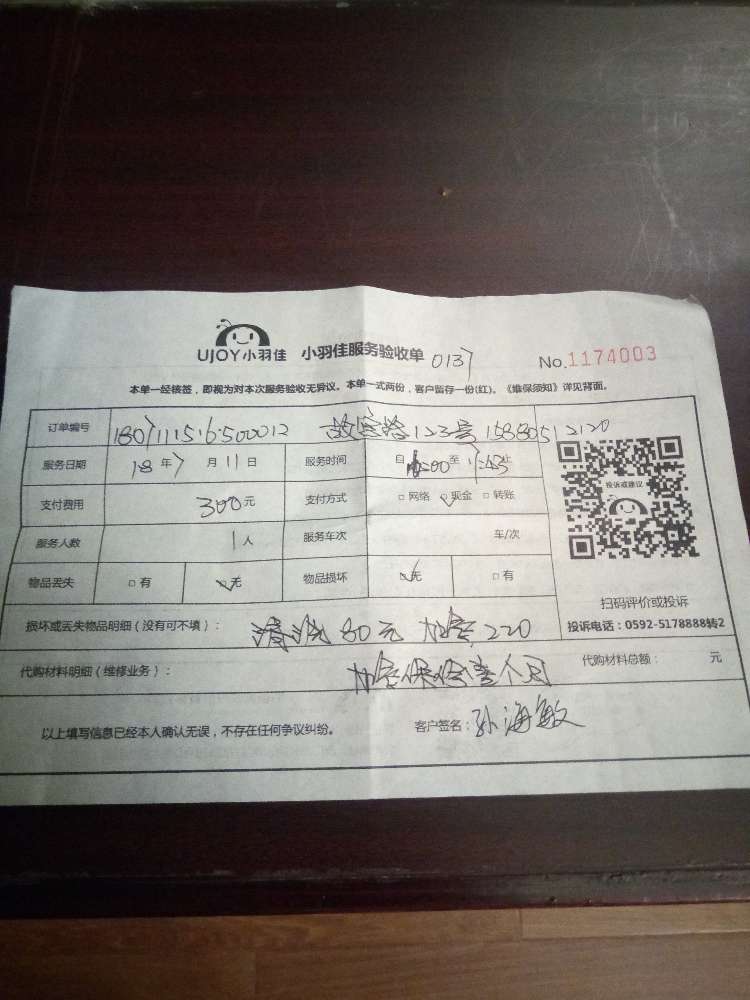 UJOY小羽佳 小羽佳服务验收单 0137 No.1174003
本单一经核签，即视为对本次服务验收无异议。本单一式两份，客户留存一份(红)。《维保须知》详见背面。
订单编号 180711156500012 123号 15880512120
服务日期 18年7月11日 服务时间 自 至 止
投诉或建议
支付费用 300元 支付方式 □网络 □现金 □转账
服务人数 1人 服务车次 车/次
物品丢失 □有 □无 物品损坏 □无 □有
扫码评价或投诉
损坏或丢失物品明细（没有可不填）： 清洗80元 加 220
投诉电话：0592-5178888转2
代购材料明细（维修业务）： 加 保 个月 代购材料总额： 元
以上填写信息已经本人确认无误，不存在任何争议纠纷。 客户签名：孙海敏